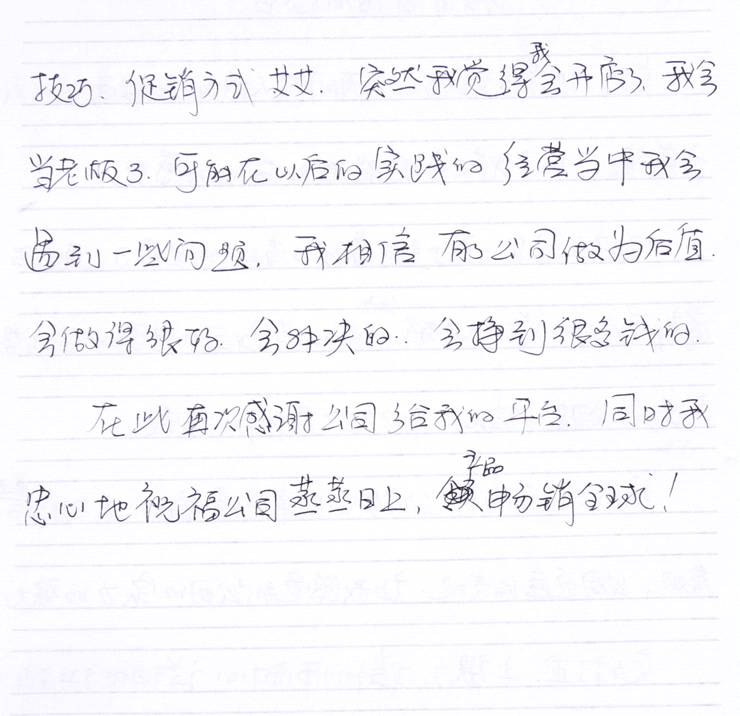 技巧、促销方式 等等. 突然我觉得我会开店了、我会
当老板了. 可能在以后的实践的经营当中我会
遇到一些问题, 我相信 有了公司做为后盾.
会做得很好. 会解决的.. 会挣到很多钱的.
在此再次感谢公司给我的平台. 同时我
忠心地祝福公司蒸蒸日上, 产品畅销全球!